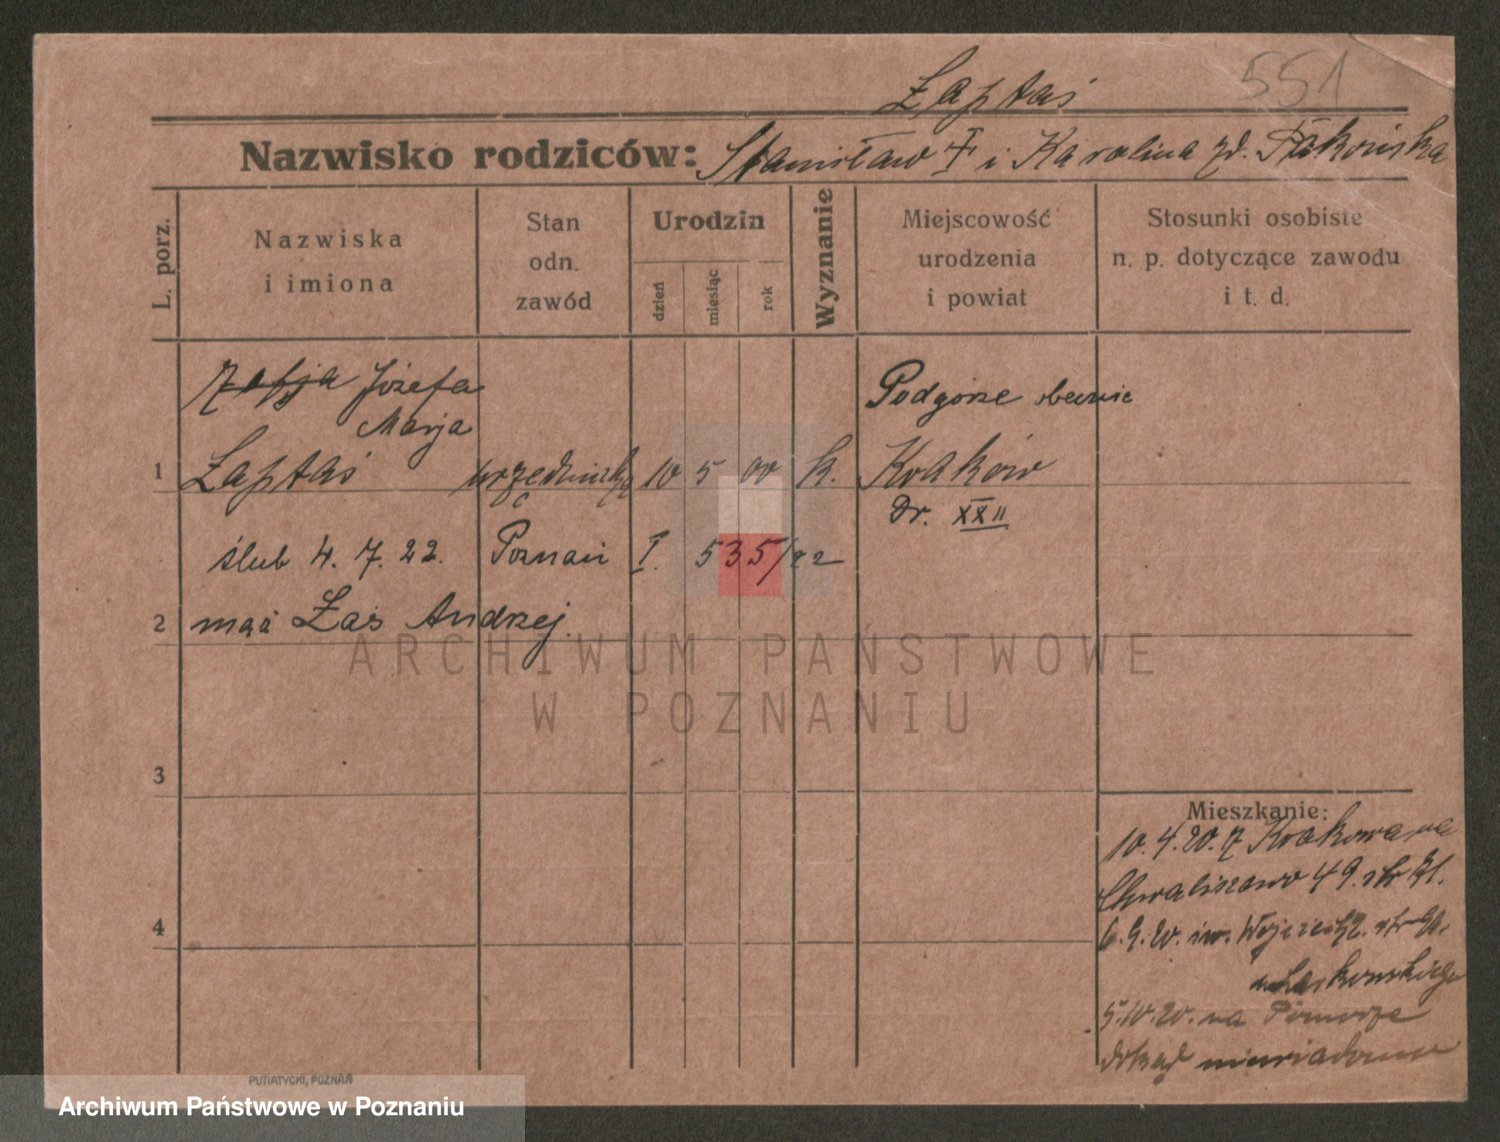 Łaptaś 551
Nazwisko rodziców: Stanisław † i Karolina zd.
L. porz.
Nazwiska
i imiona
Stan
odn.
zawód
Urodzin
dzień
miesiąc
rok
Wyznanie
Miejscowość
urodzenia
i powiat
Stosunki osobiste
n. p. dotyczące zawodu
i t. d.
Zofja Józefa
Marja
Podgórze obecnie
1 Łaptaś urzędniczka 10 5 00 k. Kraków
Dr. XXII
ślub 4. 7. 22. Poznań I. 535/22
2 mąż Łaś Andrzej
3
Mieszkanie:
10. 4. 20. z Krakowa na
Chwaliszewo 49. str
4
6. 9. 20. św. Wojciech 2. str
5. 10. 20. na Pomorze
dokąd niewiadomo
PUTIATYCKI, POZNAŃ
ARCHIWUM PAŃSTWOWE
W POZNANIU
Archiwum Państwowe w Poznaniu